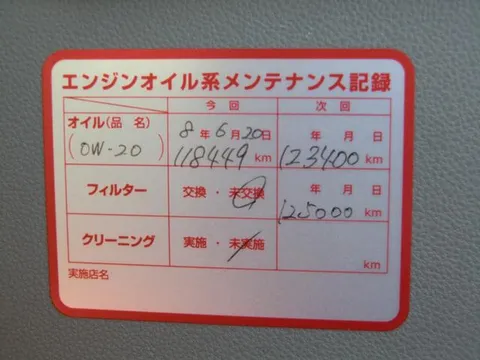 エンジンオイル系メンテナンス記録
今回 次回
オイル(品 名) 8年6月20日 年 月 日
(0W-20) 118449km 123400km
フィルター 交換・未交換 年 月 日
125000km
クリーニング 実施・未実施 km
実施店名